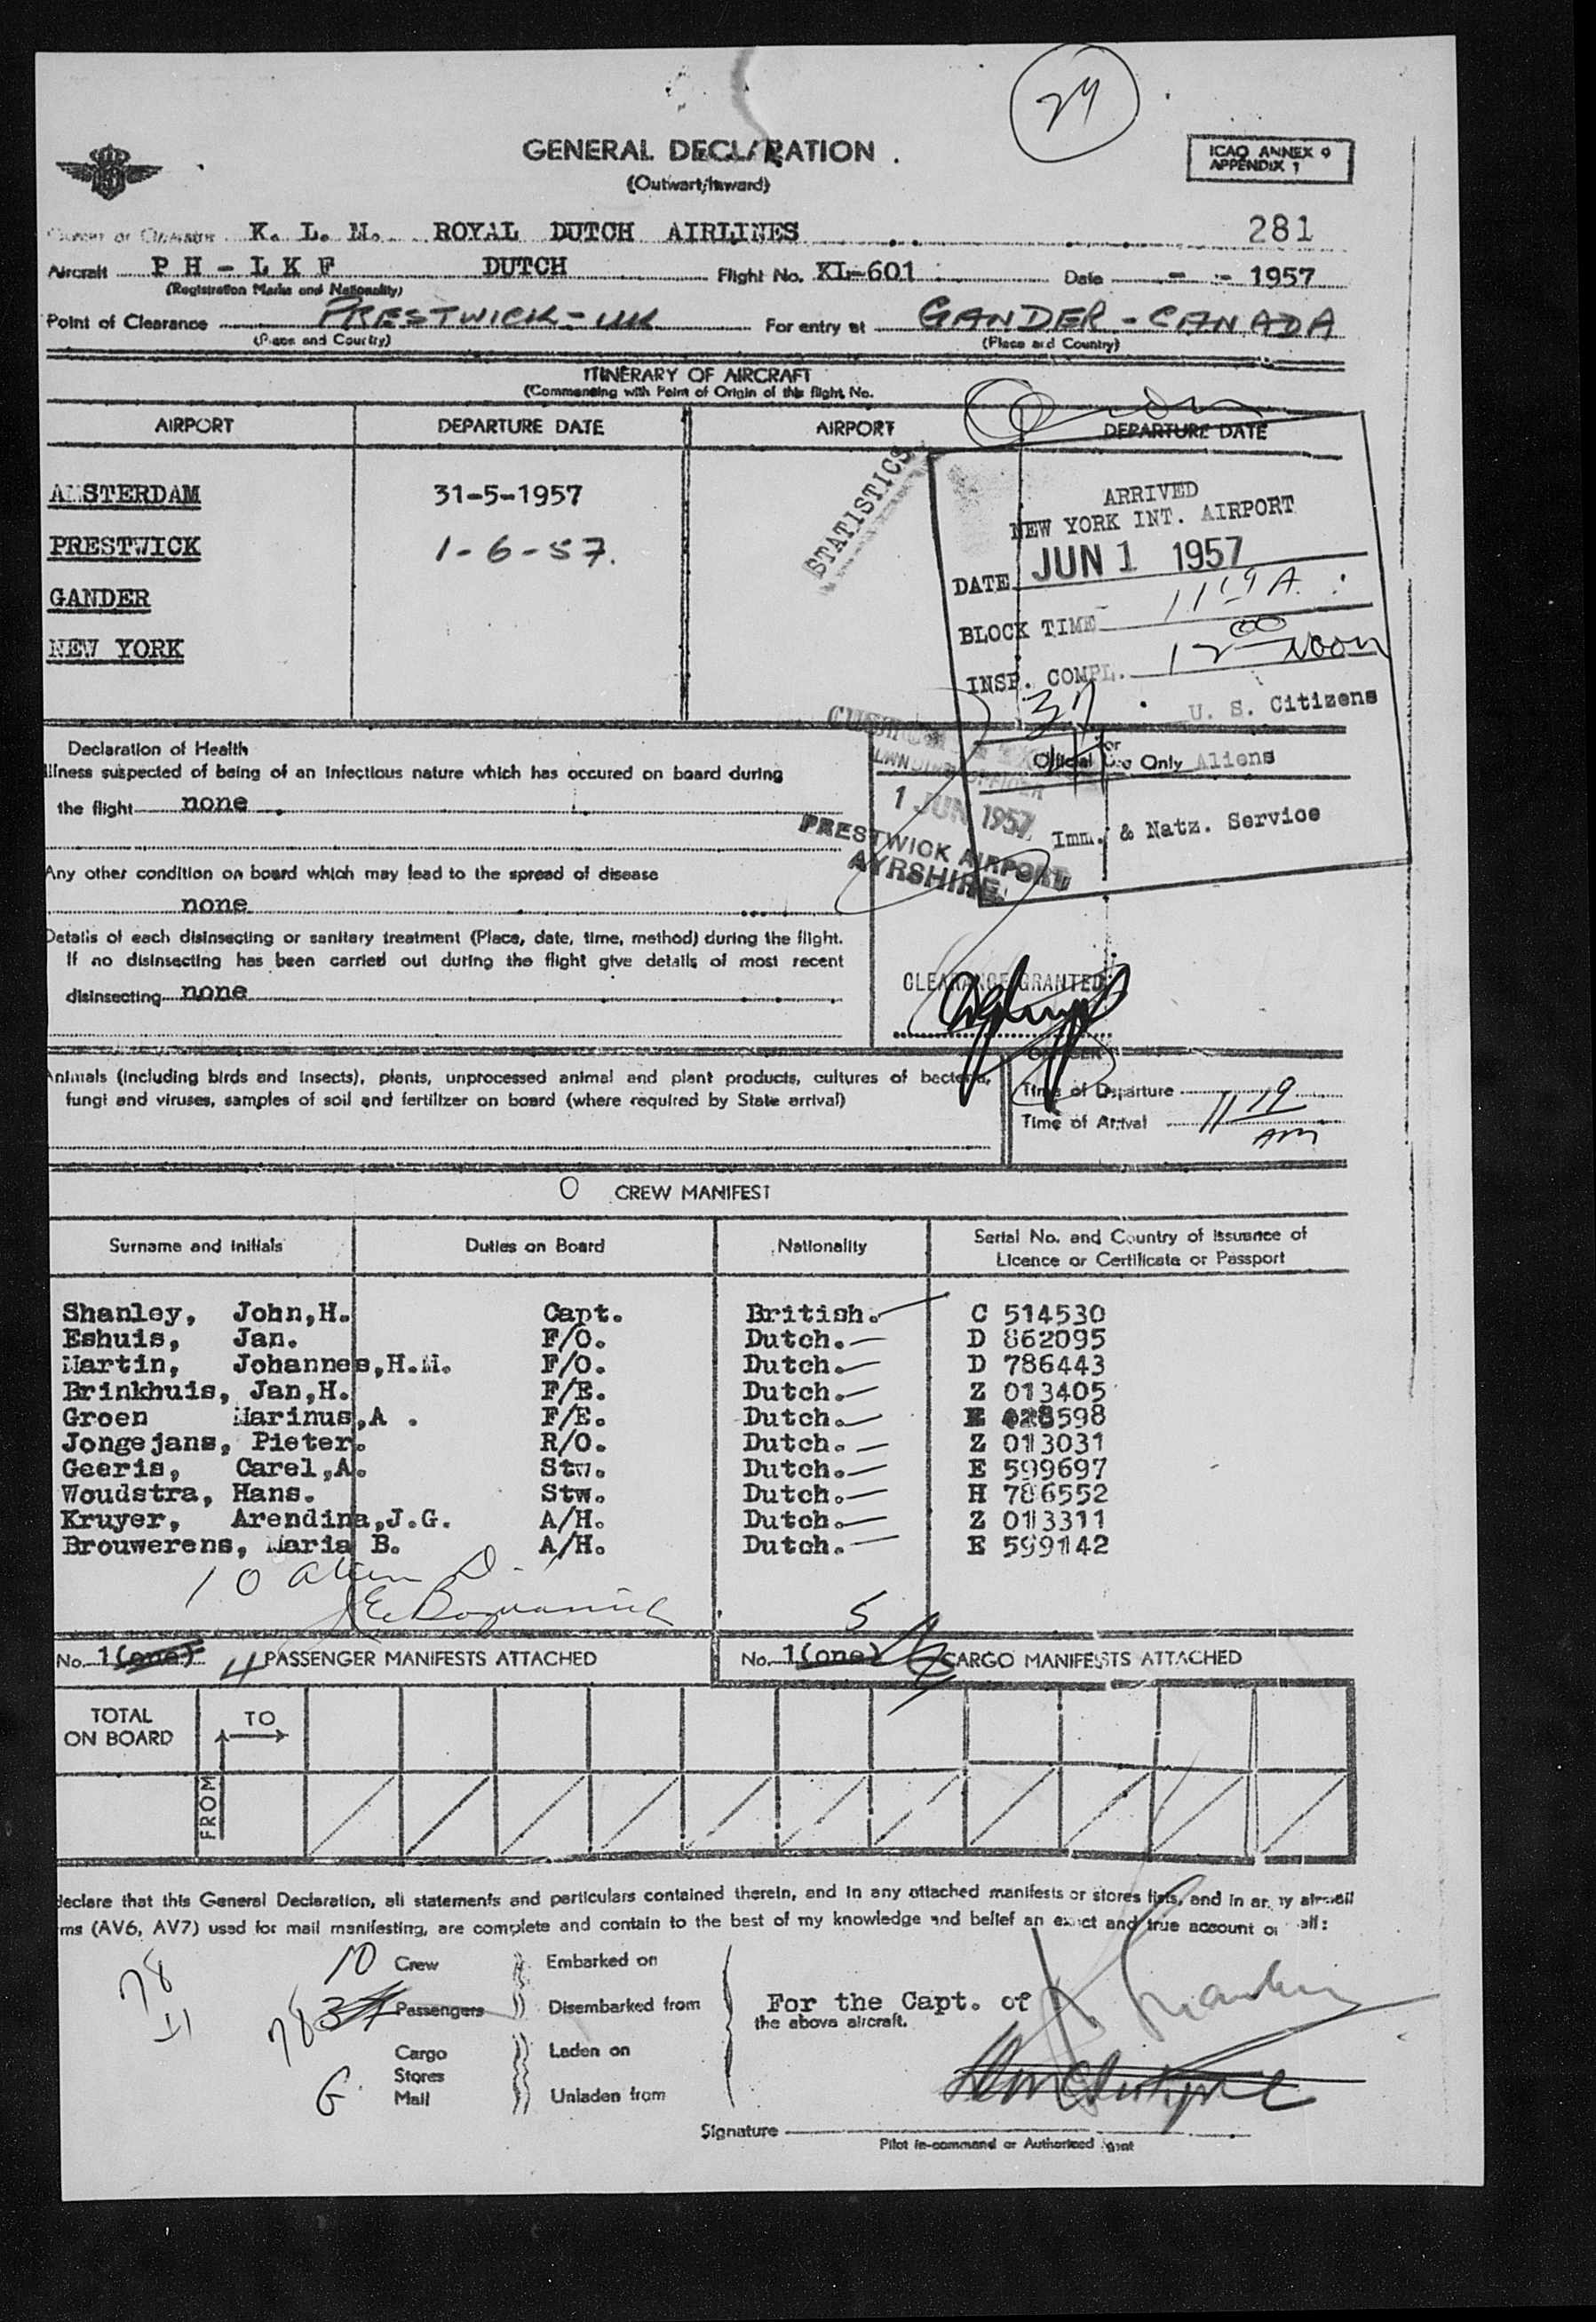 29
GENERAL DECLARATION
(Outwart/Inward)
ICAO ANNEX 9
APPENDIX 1
281
Owner or Operator K. L. M. ROYAL DUTCH AIRLINES
Aircraft P H - L K F DUTCH Flight No. KL-601 Date - - 1957
(Registration Marks and Nationality)
Point of Clearance PRESTWICK - UK For entry at GANDER - CANADA
(Place and Country) (Place and Country)
ITINERARY OF AIRCRAFT
(Commencing with Point of Origin of this flight No.
AIRPORT DEPARTURE DATE AIRPORT DEPARTURE DATE
AMSTERDAM 31-5-1957
PRESTWICK 1-6-57.
GANDER
NEW YORK
STATISTICS
ARRIVED
NEW YORK INT. AIRPORT
DATE JUN 1 1957
BLOCK TIME 11 19 A.
INSP. COMPL. 12 00 Noon
37 U. S. Citizens
or
Aliens
Imm. & Natz. Service
Official Use Only
1 JUN 1957
PRESTWICK AIRPORT
AYRSHIRE.
Declaration of Health
Illness suspected of being of an infectious nature which has occured on board during
the flight none
Any other condition on board which may lead to the spread of disease
none
Details of each disinsecting or sanitary treatment (Place, date, time, method) during the flight.
If no disinsecting has been carried out during the flight give details of most recent
disinsecting none
CLEARANCE GRANTED
OFFICER
Animals (including birds and insects), plants, unprocessed animal and plant products, cultures of bacteria,
fungi and viruses, samples of soil and fertilizer on board (where required by State arrival)
Time of Departure
Time of Arrival 11 19 AM
O CREW MANIFEST
Surname and Initials Duties on Board Nationality Serial No. and Country of Issuance of
Licence or Certificate or Passport
Shanley, John,H. Capt. British. C 514530
Eshuis, Jan. F/O. Dutch. D 862095
Martin, Johannes,H.M. F/O. Dutch. D 786443
Brinkhuis, Jan,H. F/E. Dutch. Z 013405
Groen Marinus,A . F/E. Dutch. 028598
Jongejans, Pieter. R/O. Dutch. Z 013031
Geeris, Carel,A. Stw. Dutch. E 599697
Woudstra, Hans. Stw. Dutch. H 786552
Kruyer, Arendina,J.G. A/H. Dutch. Z 013311
Brouwerens, Maria B. A/H. Dutch. E 599142
10 alien
No. 1(one) 4 PASSENGER MANIFESTS ATTACHED
No. 1(one) 5 CARGO MANIFESTS ATTACHED
TOTAL
ON BOARD
TO
FROM
declare that this General Declaration, all statements and particulars contained therein, and in any attached manifests or stores lists, and in any airmail
ms (AV6, AV7) used for mail manifesting, are complete and contain to the best of my knowledge and belief an exact and true account of all:
10 Crew Embarked on
78 37 Passengers Disembarked from
Cargo Laden on
Stores
Mail Unladen from
For the Capt. of
the above aircraft.
Signature
Pilot in-command or Authorized Agent